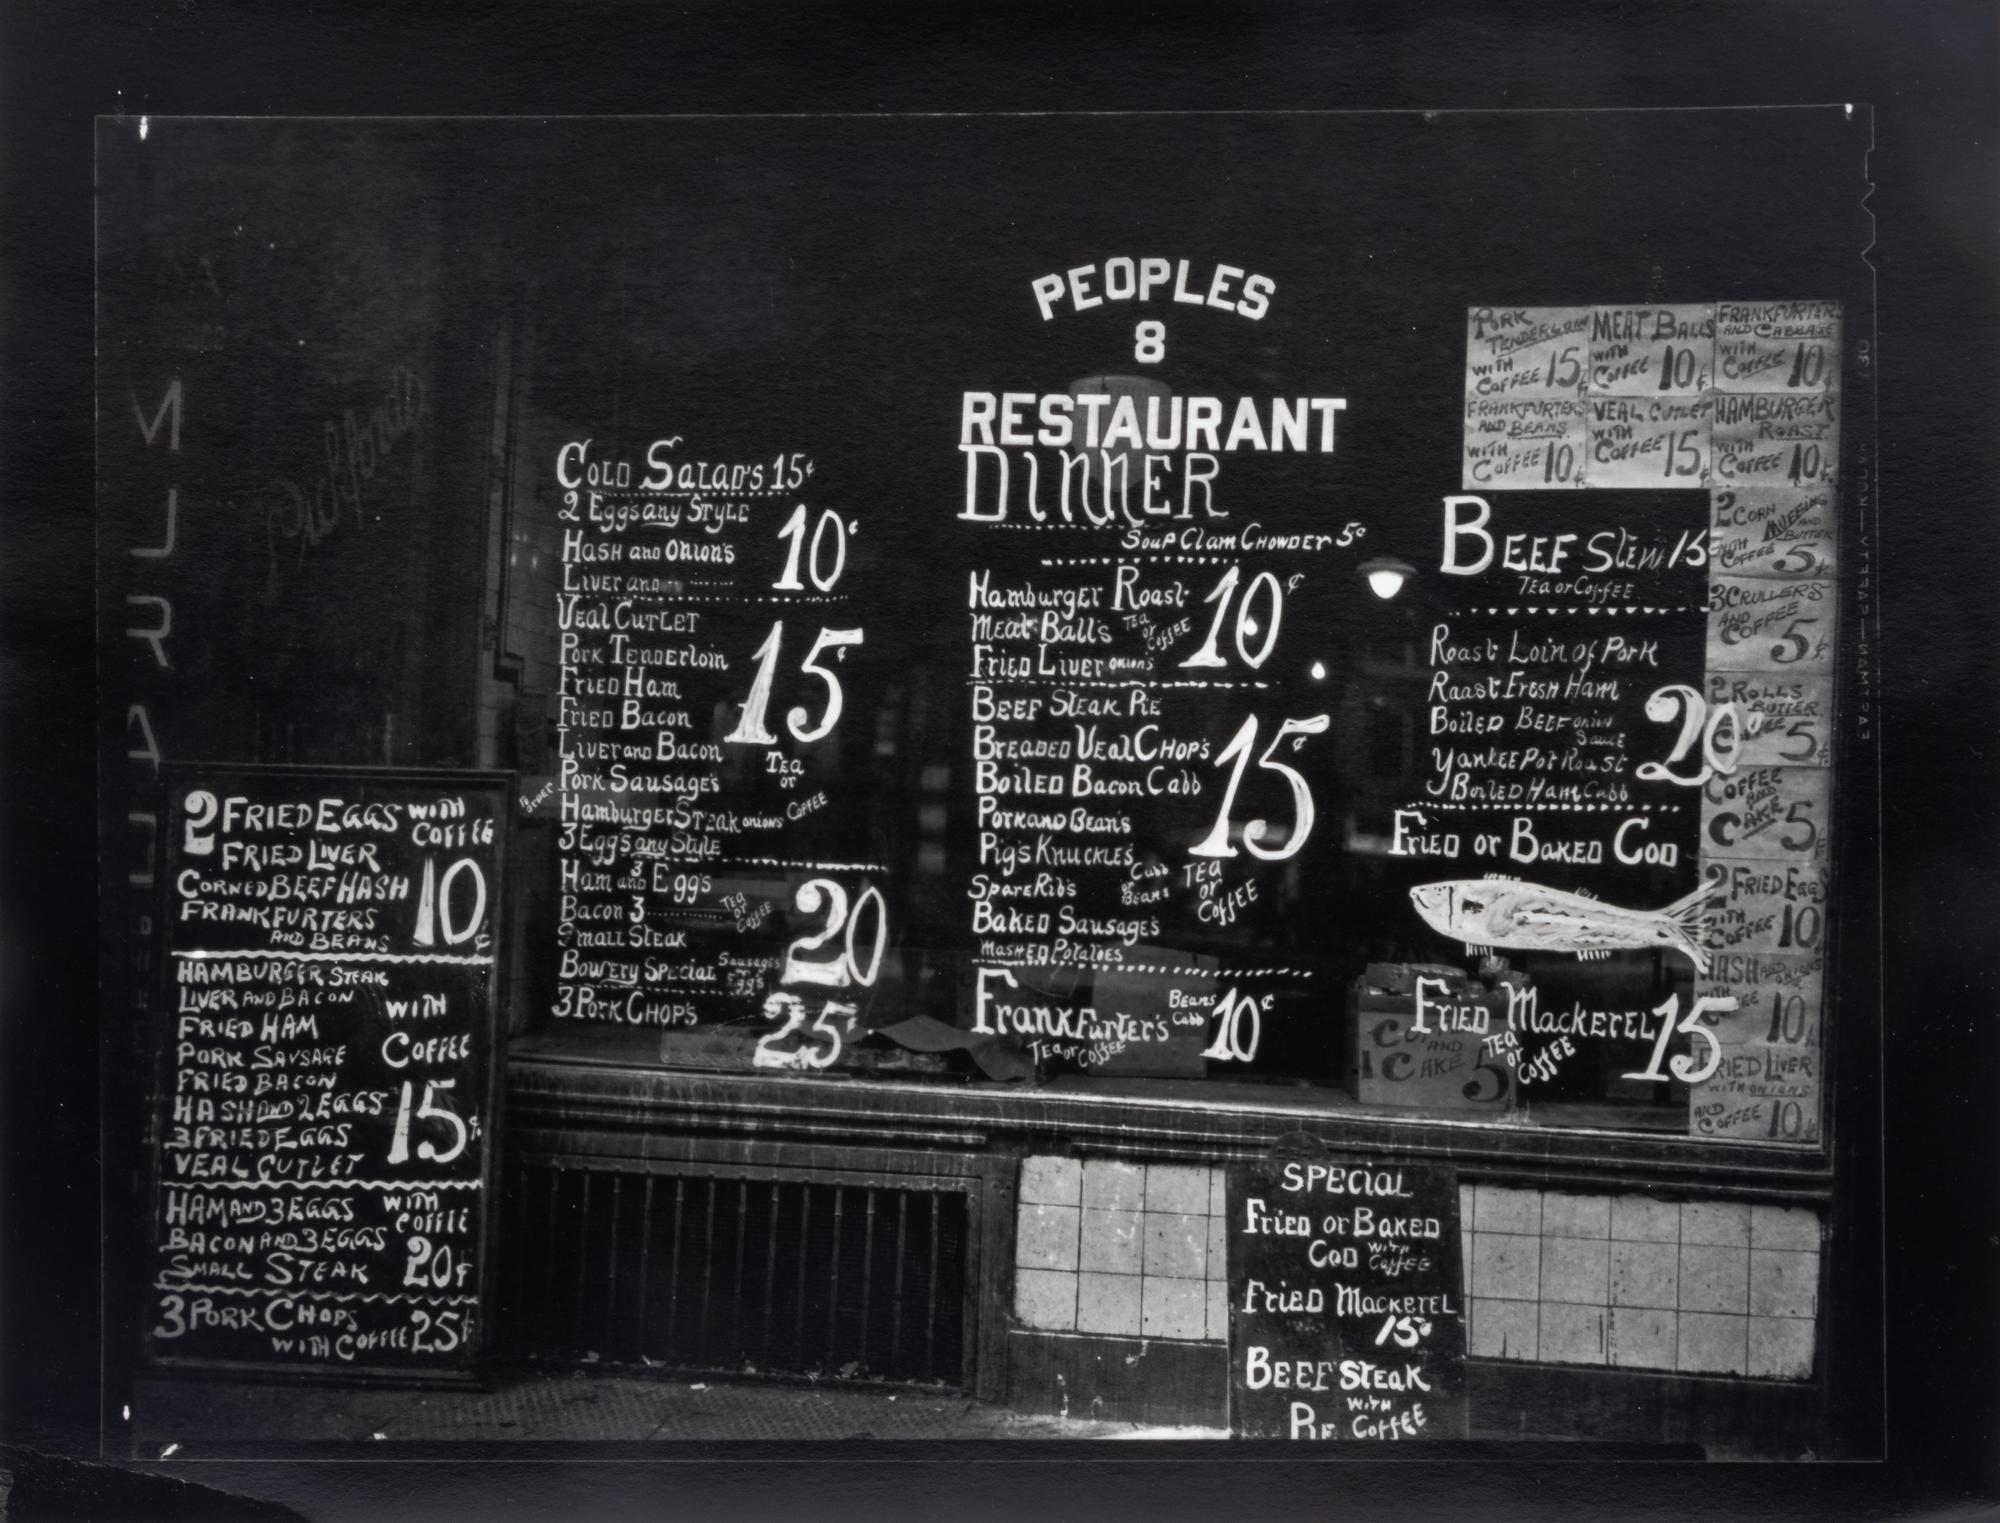 PEOPLES
8
RESTAURANT
DINNER
SOUP CLAM CHOWDER 5¢
HAMBURGER ROAST
MEAT BALL'S
FRIED LIVER ONIONS
TEA OR COFFEE
10¢
BEEF STEAK PIE
BREADED VEAL CHOP'S
BOILED BACON CABB
PORK AND BEAN'S
PIG'S KNUCKLES
SPARE RIB'S
CABB OR BEANS
BAKED SAUSAGE'S
MASHED POTATOES
15¢
TEA OR COFFEE
FRANKFURTER'S
BEANS
CABB
10¢
TEA OR COFFEE
COLD SALAD'S 15¢
2 EGG'S ANY STYLE
HASH AND ONION'S
LIVER AND
10¢
VEAL CUTLET
PORK TENDERLOIN
FRIED HAM
FRIED BACON
LIVER AND BACON
PORK SAUSAGE'S
HAMBURGER STEAK ONIONS
3 EGG'S ANY STYLE
15¢
TEA
OR
COFFEE
TO ORDER
HAM AND 3 EGG'S
BACON 3
SMALL STEAK
BOWERY SPECIAL SAUSAGES EGG'S
TEA OR COFFEE
20
3 PORK CHOP'S
25¢
BEEF STEW 15
TEA OR COFFEE
ROAST LOIN OF PORK
ROAST FRESH HAM
BOILED BEEF ONION SAUCE
YANKEE POT ROAST
BOILED HAM CABB
20¢
FRIED OR BAKED COD
FRIED MACKEREL 15
TEA
OR
COFFEE
PORK
TENDERLOIN
WITH
COFFEE 15¢
MEAT BALLS
WITH
COFFEE 10¢
FRANKFURTERS
AND CABBAGE
WITH
COFFEE 10¢
FRANKFURTERS
AND BEANS
WITH
COFFEE 10¢
VEAL CUTLET
WITH
COFFEE 15¢
HAMBURGER
ROAST
WITH
COFFEE 10¢
2 CORN
MUFFINS
AND
BUTTER
WITH
COFFEE 5¢
3 CRULLERS
AND
COFFEE
5¢
2 ROLLS
BUTTER
5¢
COFFEE
AND
CAKE 5¢
2 FRIED EGGS
WITH
COFFEE 10
HASH AND ONIONS
WITH
10¢
FRIED LIVER
WITH ONIONS
AND
COFFEE 10¢
AND
CAKE 5
2 FRIED EGGS WITH
COFFEE
FRIED LIVER
CORNED BEEF HASH
FRANKFURTERS
AND BEANS
10¢
HAMBURGER STEAK
LIVER AND BACON
FRIED HAM
PORK SAUSAGE
FRIED BACON
HASH AND 2 EGGS
3 FRIED EGGS
VEAL CUTLET
WITH
COFFEE
15¢
HAM AND 3 EGGS
BACON AND 3 EGGS
SMALL STEAK
WITH
COFFEE
20¢
3 PORK CHOPS
WITH COFFEE 25¢
SPECIAL
FRIED OR BAKED
COD WITH COFFEE
FRIED MACKEREL
15¢
BEEF STEAK
PIE WITH COFFEE